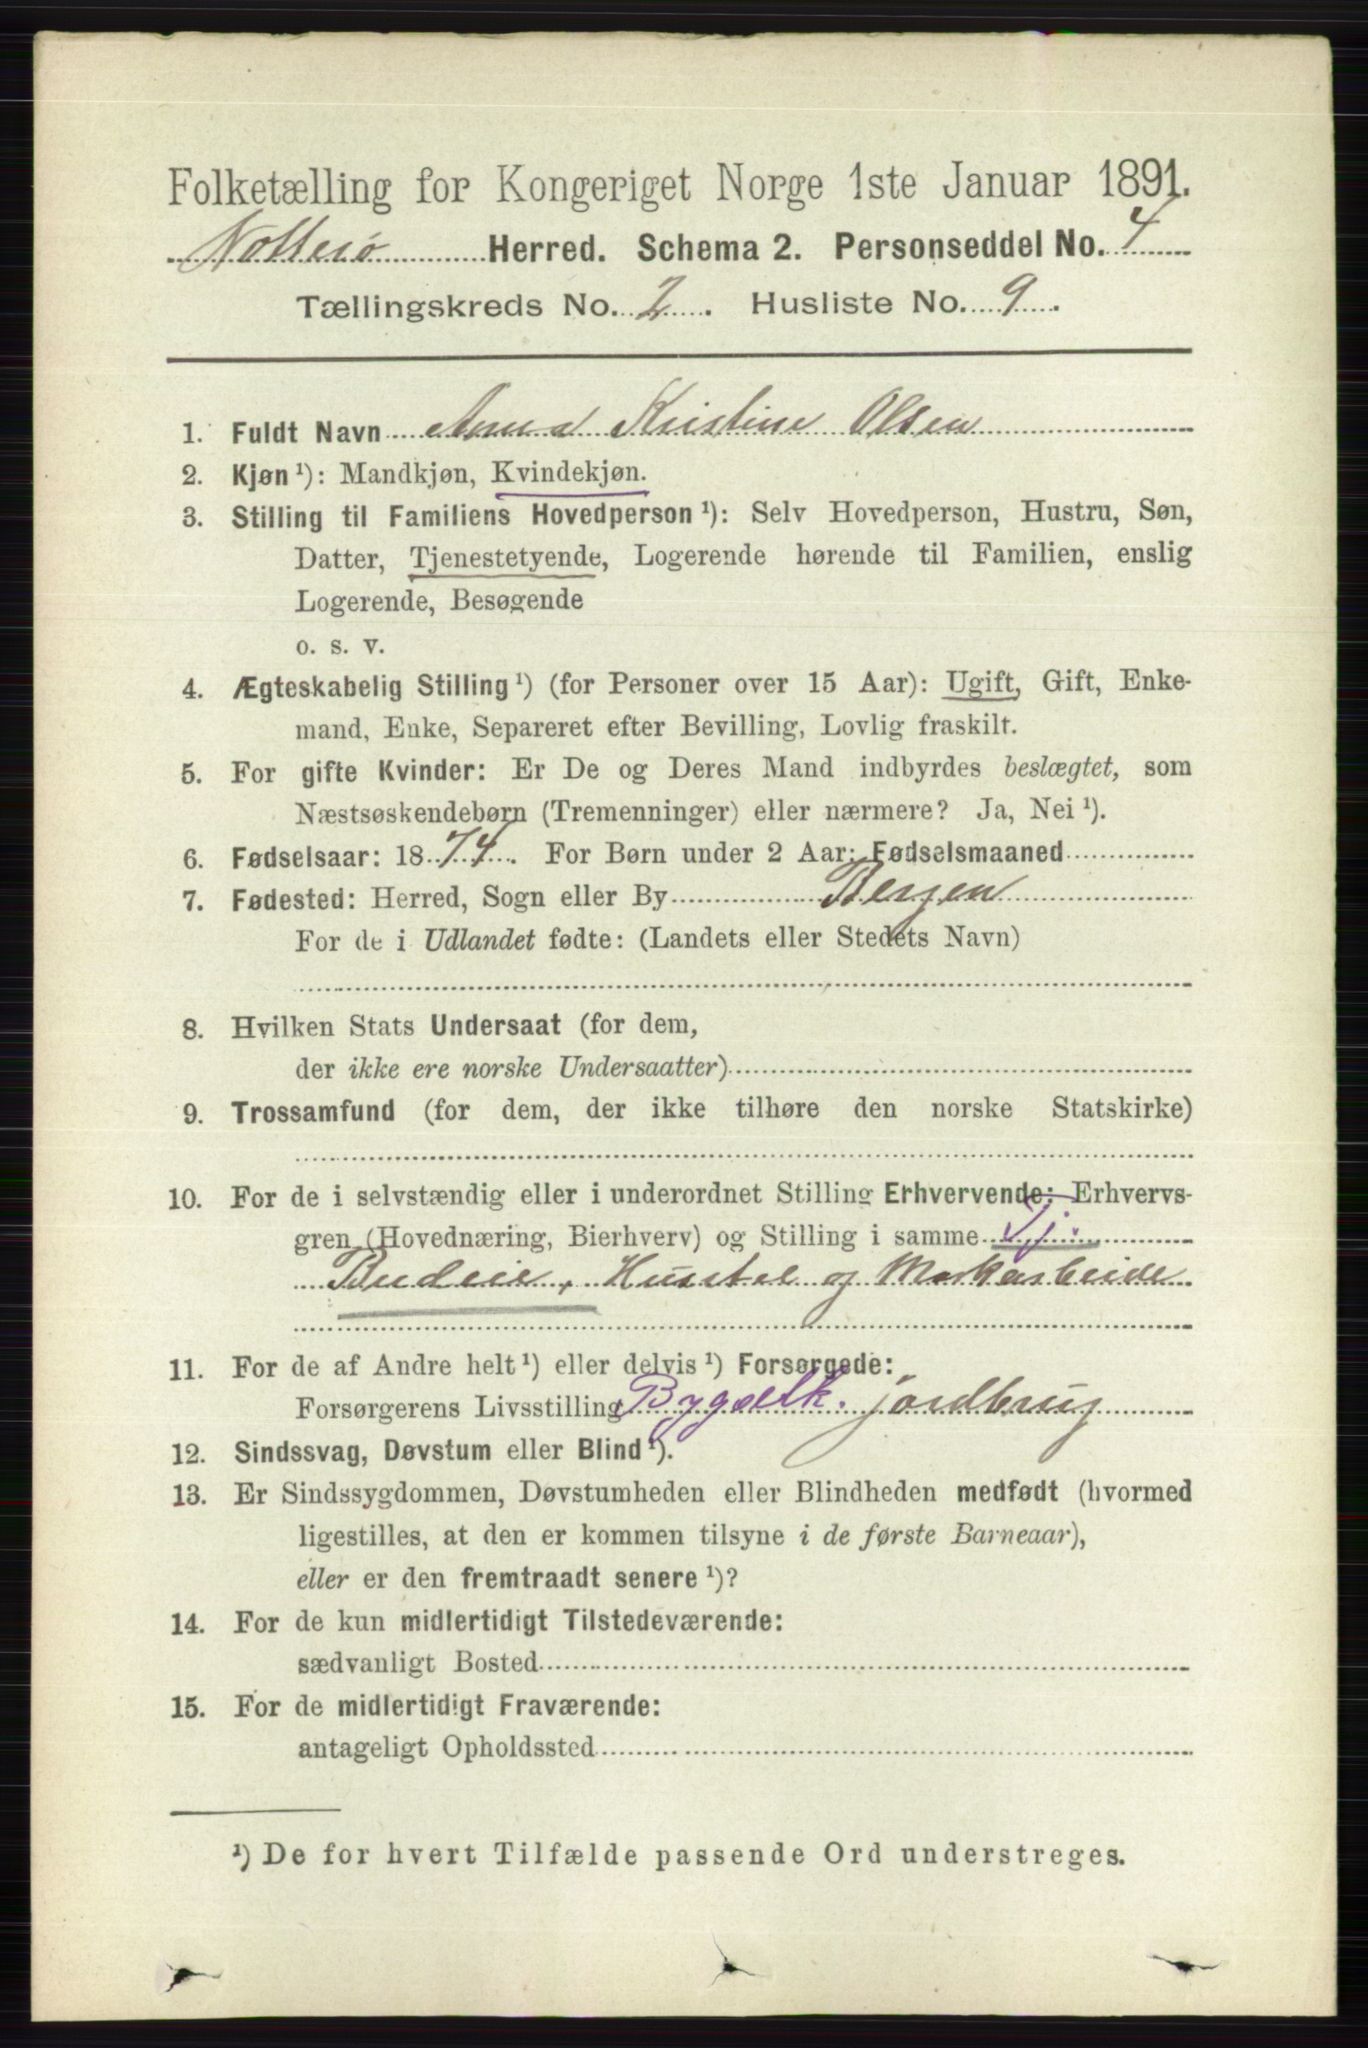 Folketælling for Kongeriget Norge 1ste Januar 1891.
Nøtterø Herred. Schema 2. Personseddel No. 4
Tællingskreds No. 2. Husliste No. 9.
1. Fuldt Navn Anna Kristine Olsen
2. Kjøn ¹): Mandkjøn, Kvindekjøn.
3. Stilling til Familiens Hovedperson ¹): Selv Hovedperson, Hustru, Søn,
Datter, Tjenestetyende, Logerende hørende til Familien, enslig
Logerende, Besøgende
o. s. v.
4. Ægteskabelig Stilling ¹) (for Personer over 15 Aar): Ugift, Gift, Enke-
mand, Enke, Separeret efter Bevilling, Lovlig fraskilt.
5. For gifte Kvinder: Er De og Deres Mand indbyrdes beslægtet, som
Næstsøskendebørn (Tremenninger) eller nærmere? Ja, Nei ¹).
6. Fødselsaar: 1874. For Børn under 2 Aar: Fødselsmaaned
7. Fødested: Herred, Sogn eller By Bergen
For de i Udlandet fødte: (Landets eller Stedets Navn)
8. Hvilken Stats Undersaat (for dem,
der ikke ere norske Undersaatter)
9. Trossamfund (for dem, der ikke tilhøre den norske Statskirke)
10. For de i selvstændig eller i underordnet Stilling Erhvervende: Erhvervs-
gren (Hovednæring, Bierhverv) og Stilling i samme Tj.
Budeie, Husstel og Markarbeide
11. For de af Andre helt ¹) eller delvis ¹) Forsørgede:
Forsørgerens Livsstilling jordbrug
12. Sindssvag, Døvstum eller Blind ¹).
13. Er Sindssygdommen, Døvstumheden eller Blindheden medfødt (hvormed
ligestilles, at den er kommen tilsyne i de første Barneaar),
eller er den fremtraadt senere ¹)?
14. For de kun midlertidigt Tilstedeværende:
sædvanligt Bosted
15. For de midlertidigt Fraværende:
antageligt Opholdssted
¹) De for hvert Tilfælde passende Ord understreges.